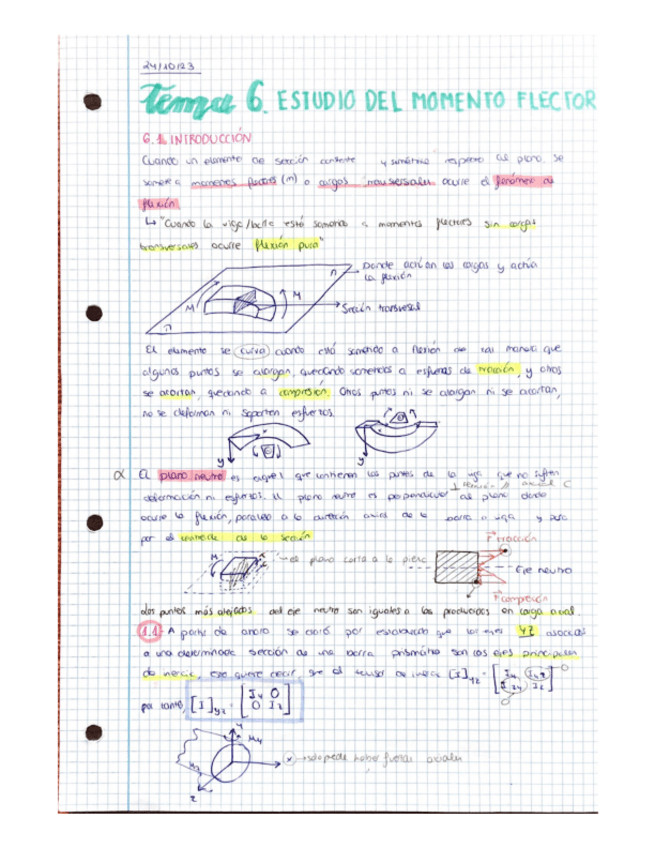 24/10/23
Tema 6. ESTUDIO DEL MOMENTO FLECTOR
6.1. INTRODUCCIÓN
Cuando un elemento de sección constante y simétrica respecto al plano se
somete a momentos flectores (m) o cargas transversales ocurre el fenómeno de
flexión
↳ "Cuando la viga/barra está sometida a momentos flectores sin cargas
transversales ocurre flexión pura"
Donde actúan las cargas y actúa
la flexión
π
M
M
Sección transversal
π
El elemento se curva cuando está sometido a flexión de tal manera que
algunos puntos se alargan, quedando sometidos a esfuerzos de tracción, y otros
se acortan, quedando a compresión. Otros puntos ni se alargan ni se acortan,
no se deforman ni soportan esfuerzos.
y
y
α El plano neutro es aquel que contienen los puntos de la viga que no sufren
deformación ni esfuerzos. El plano neutro es perpendicular al plano donde
ocurre la flexión, paralelo a la dirección axial de la barra o viga y pasa
por el centroide de la sección
M
el plano corta a la pieza
F tracción
Eje neutro
F compresión
Los puntos más alejados del eje neutro son iguales a los producidos en carga axial.
1.1 A partir de ahora se dará por establecido que los ejes YZ asociados
a una determinada sección de una barra prismática son los ejes principales
de inercia, eso quiere decir, que el tensor de inercia [I]yz =
por tanto, [I]yz = [Iy 0
0 Iz]
y
My
Mz
x → solo puede haber fuerzas axiales
z